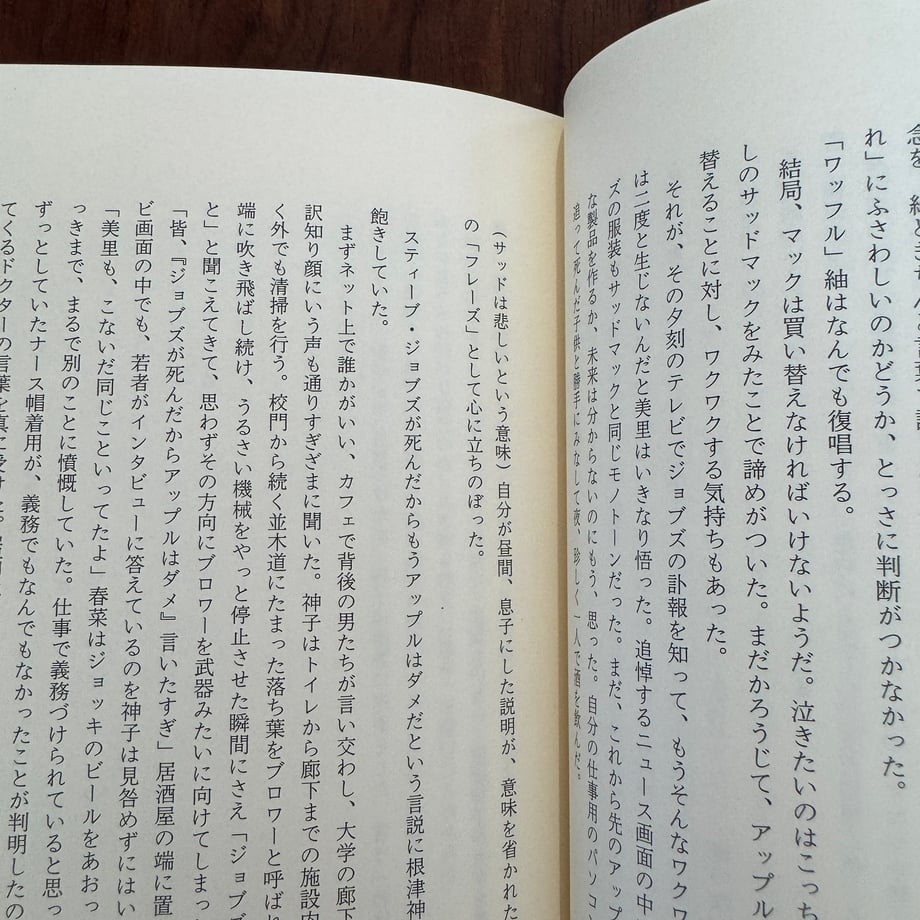 れ」にふさわしいのかどうか、とっさに判断がつかなかった。
「ワッフル」紬はなんでも復唱する。
結局、マックは買い替えなければいけないようだ。泣きたいのはこっち
しのサッドマックをみたことで諦めがついた。まだかろうじて、アップル
替えることに対し、ワクワクする気持ちもあった。
それが、その夕刻のテレビでジョブズの訃報を知って、もうそんなワクワ
は二度と生じないんだと美里はいきなり悟った。追悼するニュース画面の中
ズの服装もサッドマックと同じモノトーンだった。まだ、これから先のアップ
な製品を作るか、未来は分からないのにもう、思った。自分の仕事用のパソコン
追って死んだ子供と勝手にみなして夜、珍しく一人で酒を飲んだ。
(サッドは悲しいという意味)自分が昼間、息子にした説明が、意味を省かれた
の「フレーズ」として心に立ちのぼった。
スティーブ・ジョブズが死んだからもうアップルはダメだという言説に根津神
飽きしていた。
まずネット上で誰かがいい、カフェで背後の男たちが言い交わし、大学の廊下
訳知り顔にいう声も通りすぎざまに聞いた。神子はトイレから廊下までの施設内
く外でも清掃を行う。校門から続く並木道にたまった落ち葉をブロワーと呼ばれ
端に吹き飛ばし続け、うるさい機械をやっと停止させた瞬間にさえ「ジョブズ
と」と聞こえてきて、思わずその方向にブロワーを武器みたいに向けてしまっ
「皆、『ジョブズが死んだからアップルはダメ』言いたすぎ」居酒屋の端に置
ビ画面の中でも、若者がインタビューに答えているのを神子は見咎めずにはい
「美里も、こないだ同じこといってたよ」春菜はジョッキのビールをあおっ
っきまで、まるで別のことに憤慨していた。仕事で義務づけられていると思っ
ずっとしていたナース帽着用が、義務でもなんでもなかったことが判明したの
てくるドクターの言葉を真に受けた。